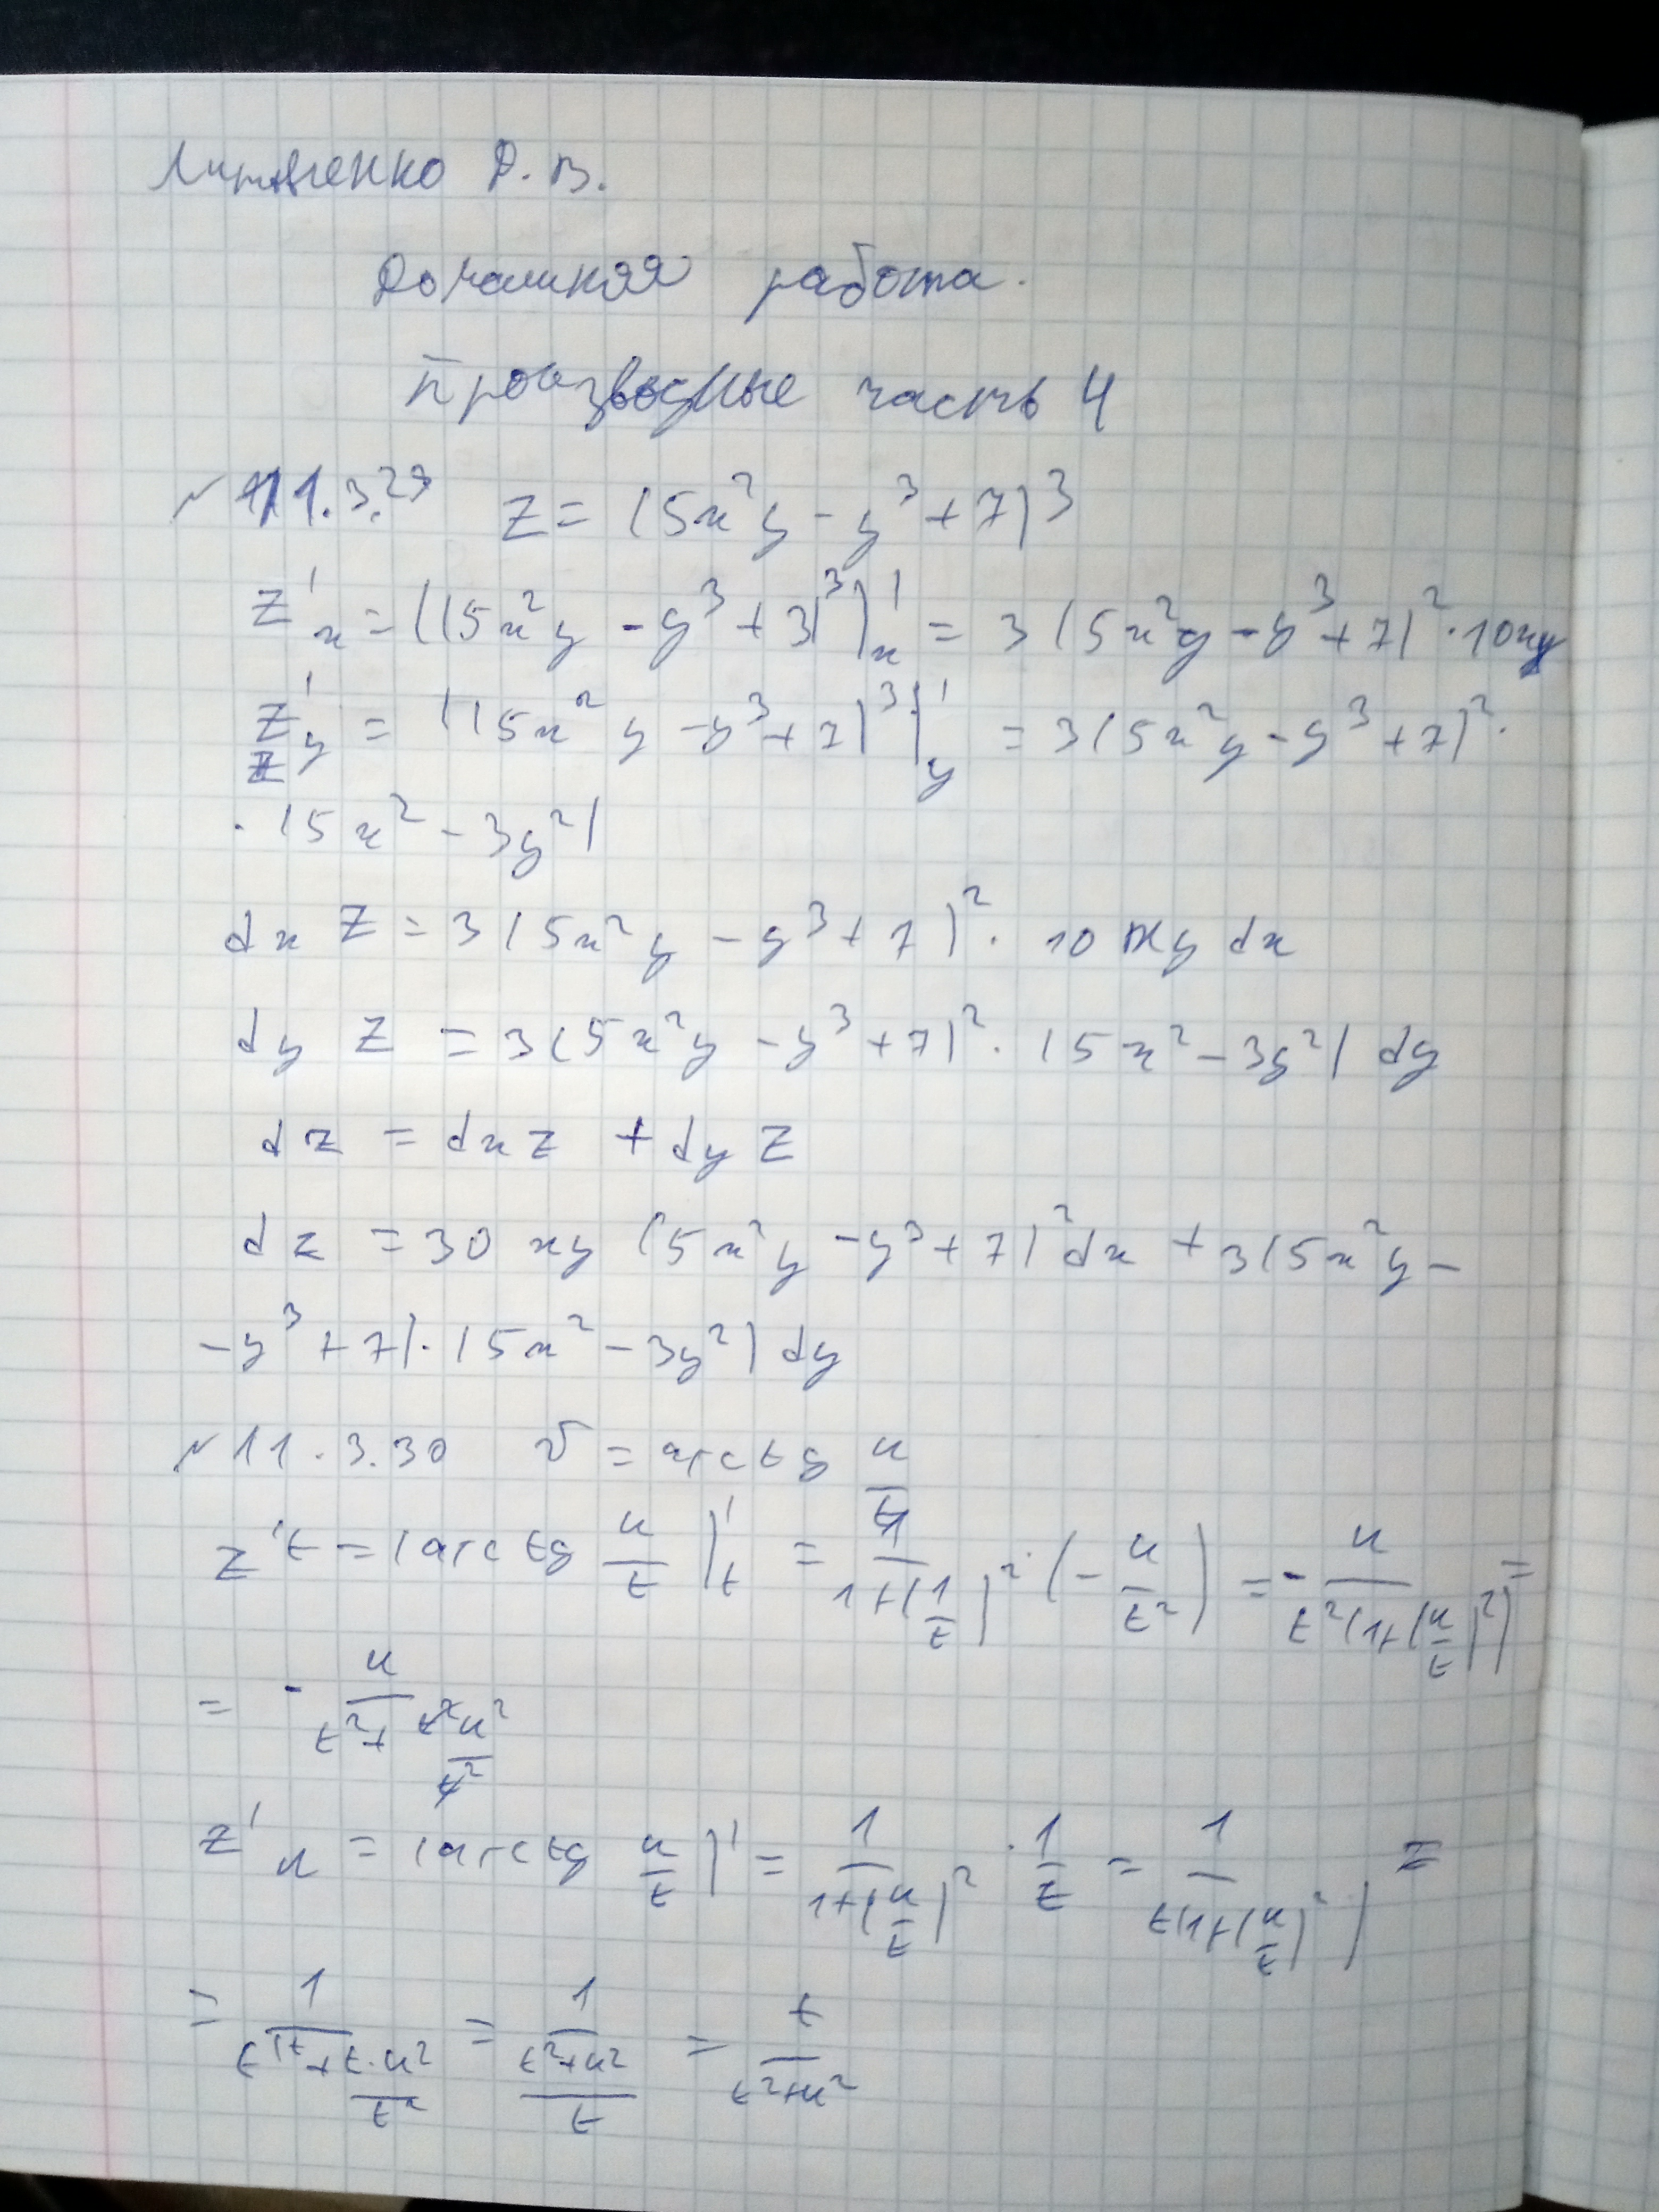 Литвиненко Д. В.
Домашняя работа.
Производные часть 4
№ 11.3.29 z = (5x²y - y³ + 7)³
z'x = ((5x²y - y³ + 3)³)'x = 3(5x²y - y³ + 7)² · 10xy
z'y = ((5x²y - y³ + 7)³)'y = 3(5x²y - y³ + 7)² ·
· (5x² - 3y²)
dx z = 3(5x²y - y³ + 7)² · 10xy dx
dy z = 3(5x²y - y³ + 7)² · (5x² - 3y²) dy
dz = dx z + dy z
dz = 30 xy (5x²y - y³ + 7)² dx + 3(5x²y -
- y³ + 7) · (5x² - 3y²) dy
№ 11.3.30 v = arctg u/t
z't = (arctg u/t)'t = 1/(1+(1/t)²) · (-u/t²) = - u/(t²(1+(u/t)²)) =
= - u/(t² + t²u²/t²)
z'u = (arctg u/t)' = 1/(1+(u/t)²) · 1/z = 1/(t(1+(u/t)²)) =
= 1/(t + t·u²/t²) = 1/((t²+u²)/t) = t/(t²+u²)